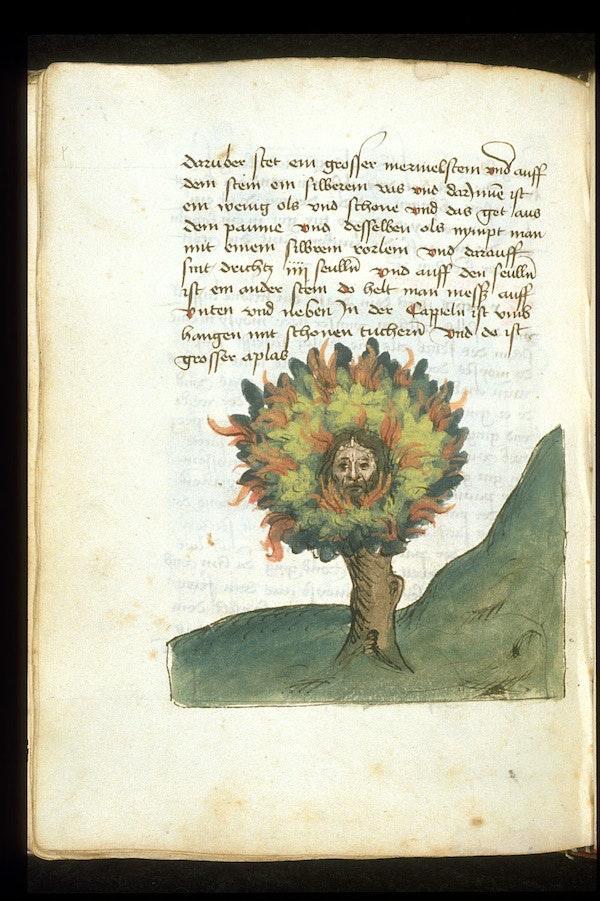 daruber stet ein grosser mermelstem vnd auff
dem stein ein silberein vas vnd darjnne ist
ein wenig ols vnd schone vnd das get aus
dem paume vnd desselben ols nympt man
mit einem silbrem rorlein vnd darauff
sint drichtz iiii seulln vnd auff den seulln
ist ein ander stein do helt man messz auff
vnten vnd neben jn der Cappeln ist vmb
hangen mit schonen tuchern vnd do ist
grosser aplas